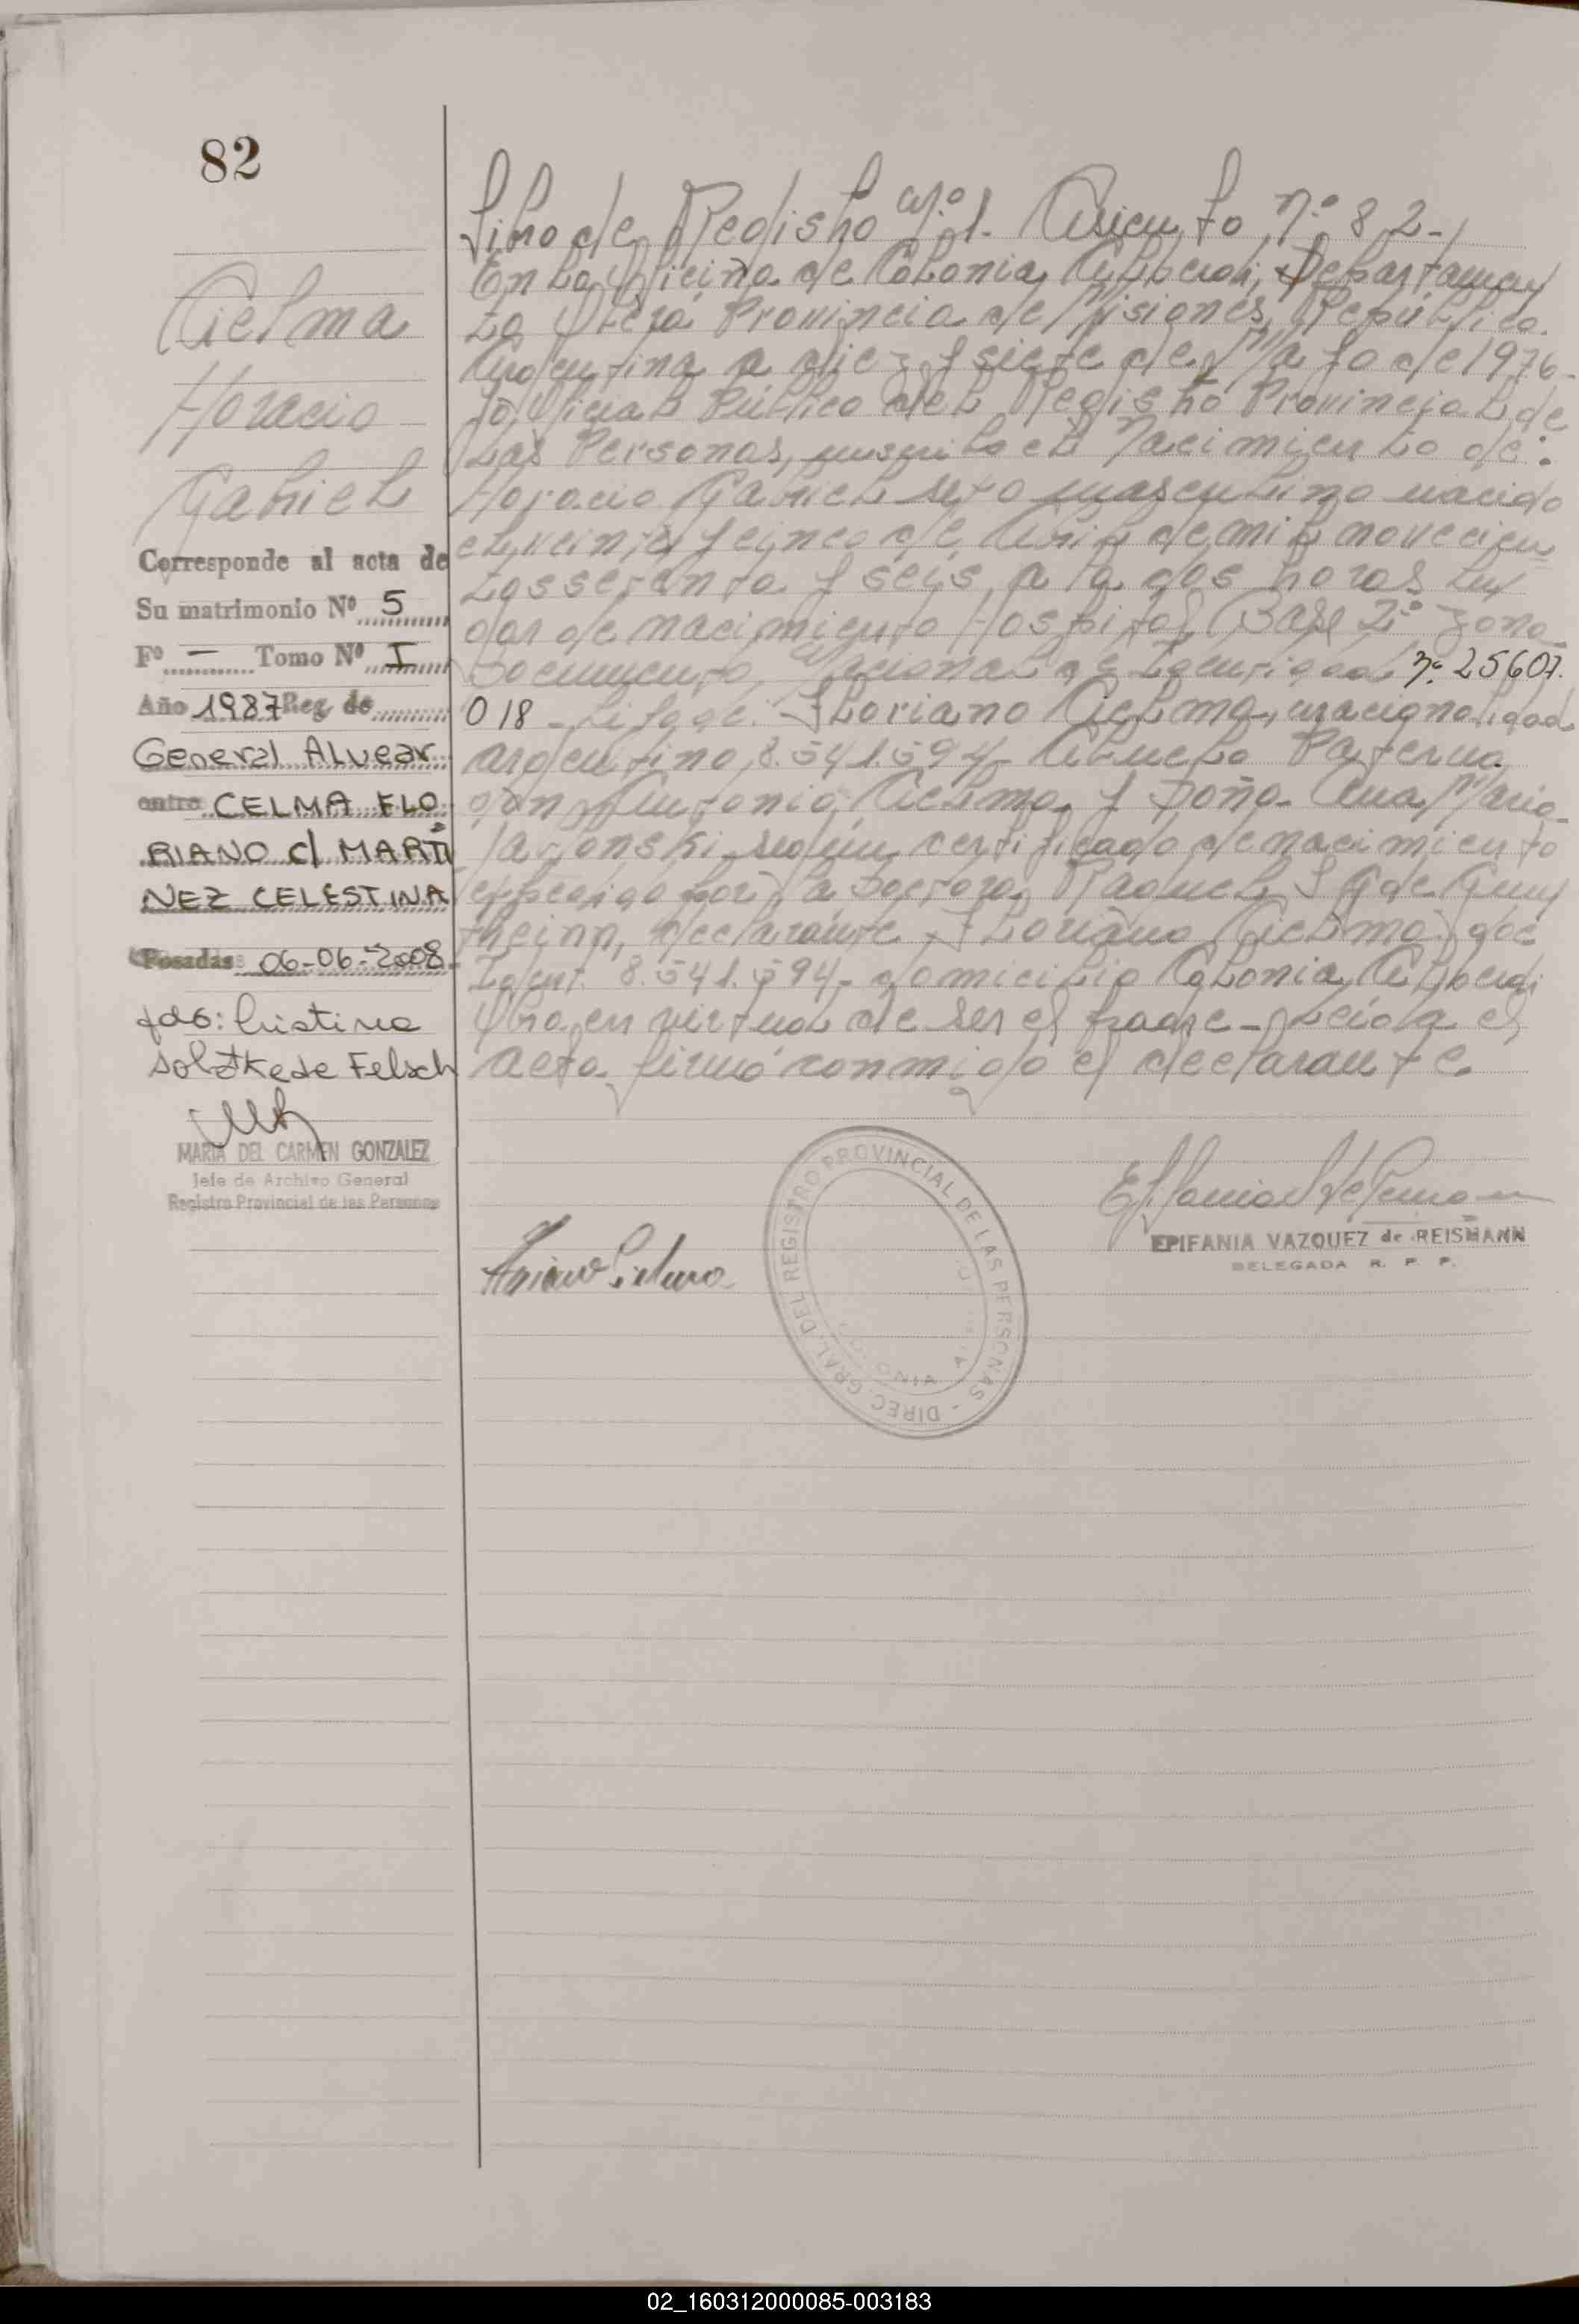 82
Cielma
Horacio
Gabriel
Corresponde al acta de
Su matrimonio Nº 5
Fº — Tomo Nº I
Año 1987 Reg. de
General Alvear
entre CELMA FLO
RIANO c/ MARTI
NEZ CELESTINA
Posadas 06-06-2008
fdo: Cristina
Solotke de Felsch
MARIA DEL CARMEN GONZALEZ
Jefe de Archivo General
Registro Provincial de las Personas
Libro de Registro Nº 1. Asiento nº 82-
En la Oficina de Colonia Alberdi, Departamen
to Oberá Provincia de Misiones, República
Argentina a diez y siete de Mayo de 1976-
Yo, Oficial Público del Registro Provincial de
las Personas, inscribo el Nacimiento de:
Horacio Gabriel sexo masculino nacido
el veinte y cinco de Abril de mil novecien
tos setenta y seis, a la dos horas lu
gar de nacimiento Hospital Base 2º Zona
Documento Nacional de Identidad nº 25607.
018 - hijo de: Floriano Cielma, nacionalidad
argentino, 8.541.594- Abuelo Paterno
don Antonio Cielma y Doña Ana Maria
según certificado de nacimiento
expedido por la Doctora Raquel S G de
declarante Floriano Cielma doc
Ident. 8.541.594- domicilio Colonia Alberdi
Obra en virtud de ser el padre - Leída el
acta firmó conmigo el declarante
Floriano Cielma
DIREC. GRAL. DEL REGISTRO PROVINCIAL DE LAS PERSONAS -
EPIFANIA VAZQUEZ de REISMANN
DELEGADA R. P. P.
02_160312000085-003183